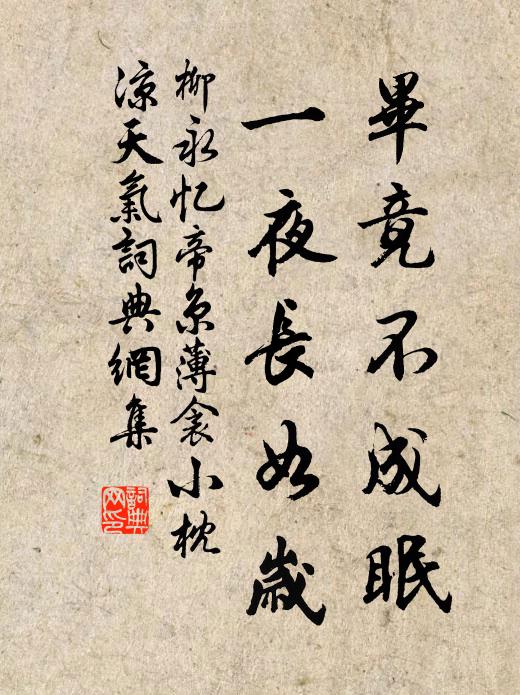 畢竟不成眠
一夜長如歲
柳永忆帝京薄衾小枕
凉天氣詞典網集
詞典网印